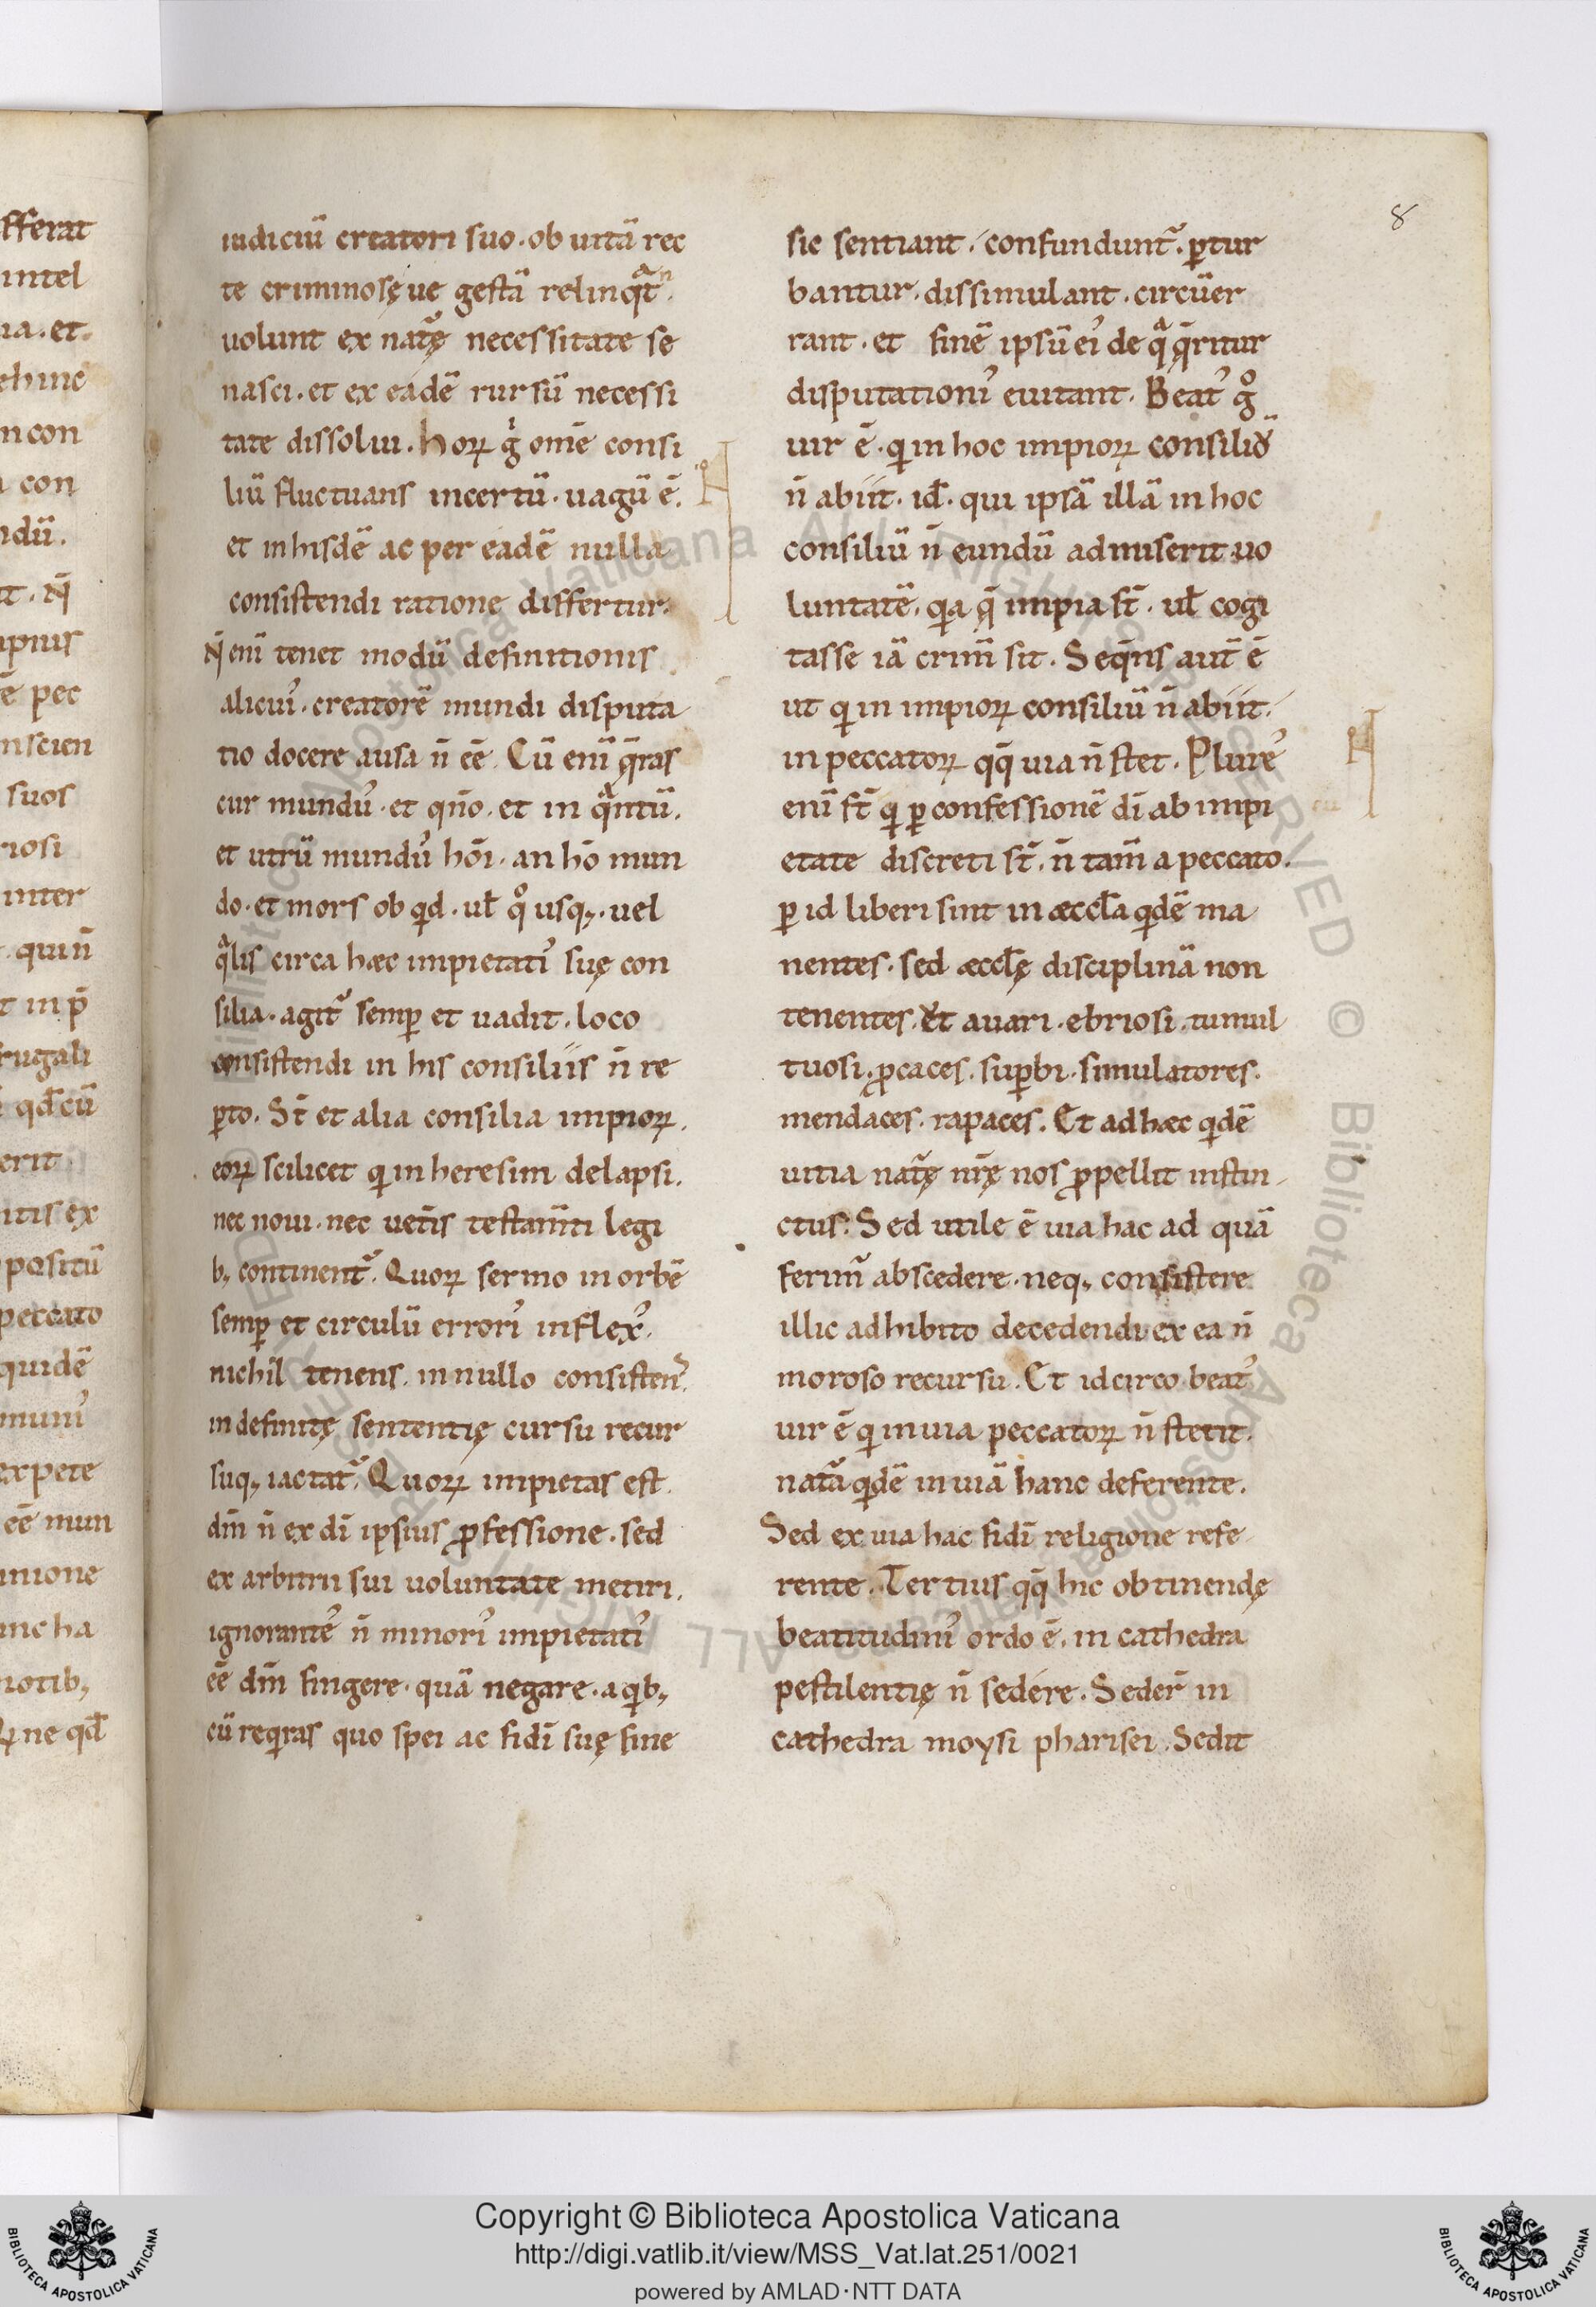 fferat
intel
ia. et
ehinc
n con
a con
ndū.
it. N̄
ipius
ē pec
nscien
suos
riosi
inter
quin̄
t in p̄
frugali
qđ cū
erit
ntis ex
positū
peccato
quidē
muniʼ
expete
eē mun
inione
inc ha
notib;
ne qđ
8
iudiciū creatori suo. ob uitā rec
te criminosęue gestā relinqͣt.
uolunt ex natę necessitate se
nasci. et ex eadē rursū necessi
tate dissolui. Hoꝝ gͥ om̄e consi
liū fluctuans incertū. uagū ē.
et in hisdē ac per eadē nulla
consistendi ratione differtur.
N̄ eni̅ tenet modū definitionis
alicuiʼ. creatorē mundi disputa
tio docere ausa n̄ eē. Cū eni̅ q̄ras
cur munduʼ. et qn̄o. et in qͣntū.
et utrū munduʼ hōi. an hō mun
do. et mors ob qid. ul̄ qͦ usq;. uel
qͣlis circa hæc impietatiʼ suę con
silia. agit᷑ semꝑ et uadit. loco
consistendi in his consiliis n̄ re
ꝑto. St̄ et alia consilia impioꝝ.
eoꝝ scilicet qi in heresim delapsi.
nec noui. nec uet̄is testam̄ti legi
b; continent᷑. Quoꝝ sermo in orbē
semꝑ et circulū erroriʼ inflexʼ.
nichil tenens. in nullo consistenʼ.
indefinitę sententię cursu recur
suq; iactat᷑. Quoꝝ impietas est.
dm̄ n̄ ex di̅ ipsius ꝓfessione. sed
ex arbitrii sui uoluntate metiri.
ignoranteʼ n̄ minoriʼ impietatiʼ
eē dm̄ fingere. quā negare. a qib;
cū reqiras quo spei ac fidi̅ suę fine
sic sentiant. confundunt᷑. ꝑtur
bantur. dissimulant. circūer
rant. et finē ipsū eiʼ de qͣ q̄ritur
disputationiʼ euitant. Beatʼ gͦ
uir ē. qi in hoc impioꝝ consiliū
n̄ abiit. id̄. qui ipsā illā in hoc
consiliū n̄ eundū admiserit uo
luntatē. qia q̄ impia st̄. ul̄ cogi
tasse iā crim̄ sit. Seq̄ns aut̄ ē
ut qi in impioꝝ consiliū n̄ abiit.
in peccatoꝝ qq̄ uia n̄ stet. Plureʼ
eni̅ st̄ qi ꝑ confessionē di̅ ab impi
etate discreti st̄. n̄ tam̄ a peccato.
ꝑ id liberi sint in æccl̄a qidē ma
nentes. sed æccl̄ę disciplinā non
tenentes. Et auari. ebriosi. tumul
tuosi. ꝓcaces. suꝑbi. simulatores.
mendaces. rapaces. Et ad hæc qidē
uitia natę nr̄ę nos ꝓpellit instin
ctus. Sed utile ē uia hac ad quā
ferim᷑ abscedere. neq; consistere
illic adhibito decedendi ex ea n̄
moroso recursu. Et idcirco beatʼ
uir ē qi in uia peccatoꝝ n̄ stetit.
natā qidē in uiā hanc deferente.
Sed ex uia hac fidi̅ religione refe
rente. Tertius qq̄ hic obtinendę
beatitudiniʼ ordo ē. in cathedra
pestilentię n̄ sedere. Seder̄ in
cathedra moysi pharisei. Sedit
Copyright © Biblioteca Apostolica Vaticana
http://digi.vatlib.it/view/MSS_Vat.lat.251/0021
powered by AMLAD · NTT DATA
BIBLIOTECA APOSTOLICA VATICANA
BIBLIOTECA APOSTOLICA VATICANA